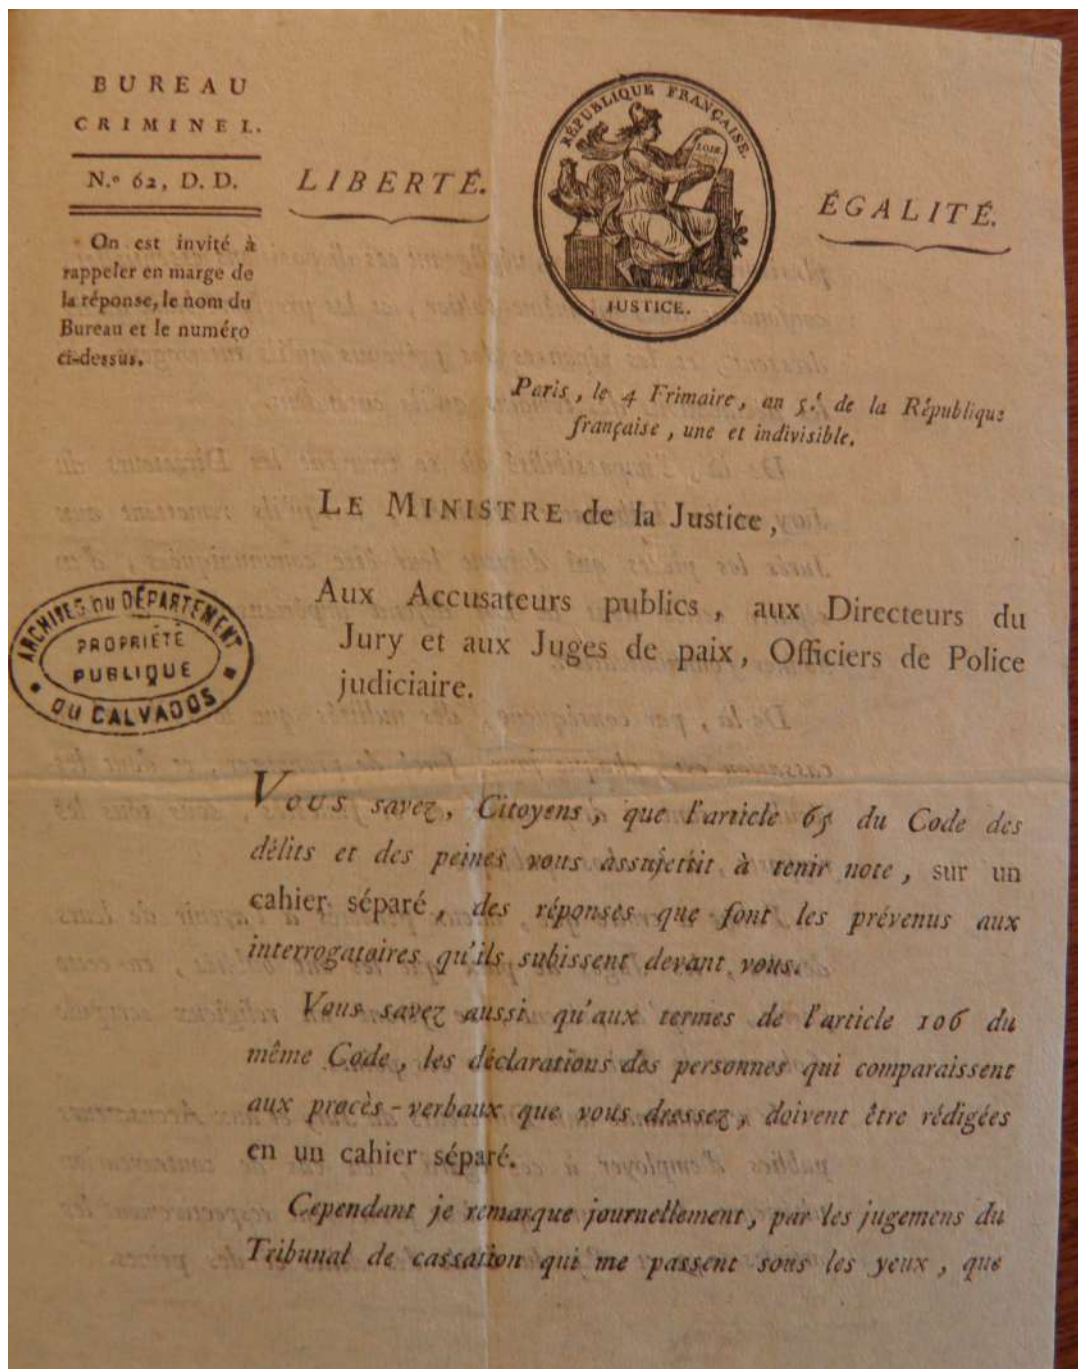 BUREAU
CRIMINEL.
N.° 62, D. D.
On est invité à
rappeler en marge de
la réponse, le nom du
Bureau et le numéro
ci-dessus.
LIBERTÉ.
RÉPUBLIQUE FRANÇAISE.
LOIS
JUSTICE.
ÉGALITÉ.
Paris, le 4 Frimaire, an 5.e de la République
française, une et indivisible.
LE MINISTRE de la Justice,
Aux Accusateurs publics, aux Directeurs du
Jury et aux Juges de paix, Officiers de Police
judiciaire.
ARCHIVES DU DÉPARTEMENT
PROPRIÉTÉ
PUBLIQUE
DU CALVADOS
Vous savez, Citoyens, que l'article 65 du Code des
délits et des peines vous assujettit à tenir note, sur un
cahier séparé, des réponses que font les prévenus aux
interrogatoires qu'ils subissent devant vous.
Vous savez aussi qu'aux termes de l'article 106 du
même Code, les déclarations des personnes qui comparaissent
aux procès-verbaux que vous dressez, doivent être rédigées
en un cahier séparé.
Cependant je remarque journellement, par les jugemens du
Tribunal de cassation qui me passent sous les yeux, que